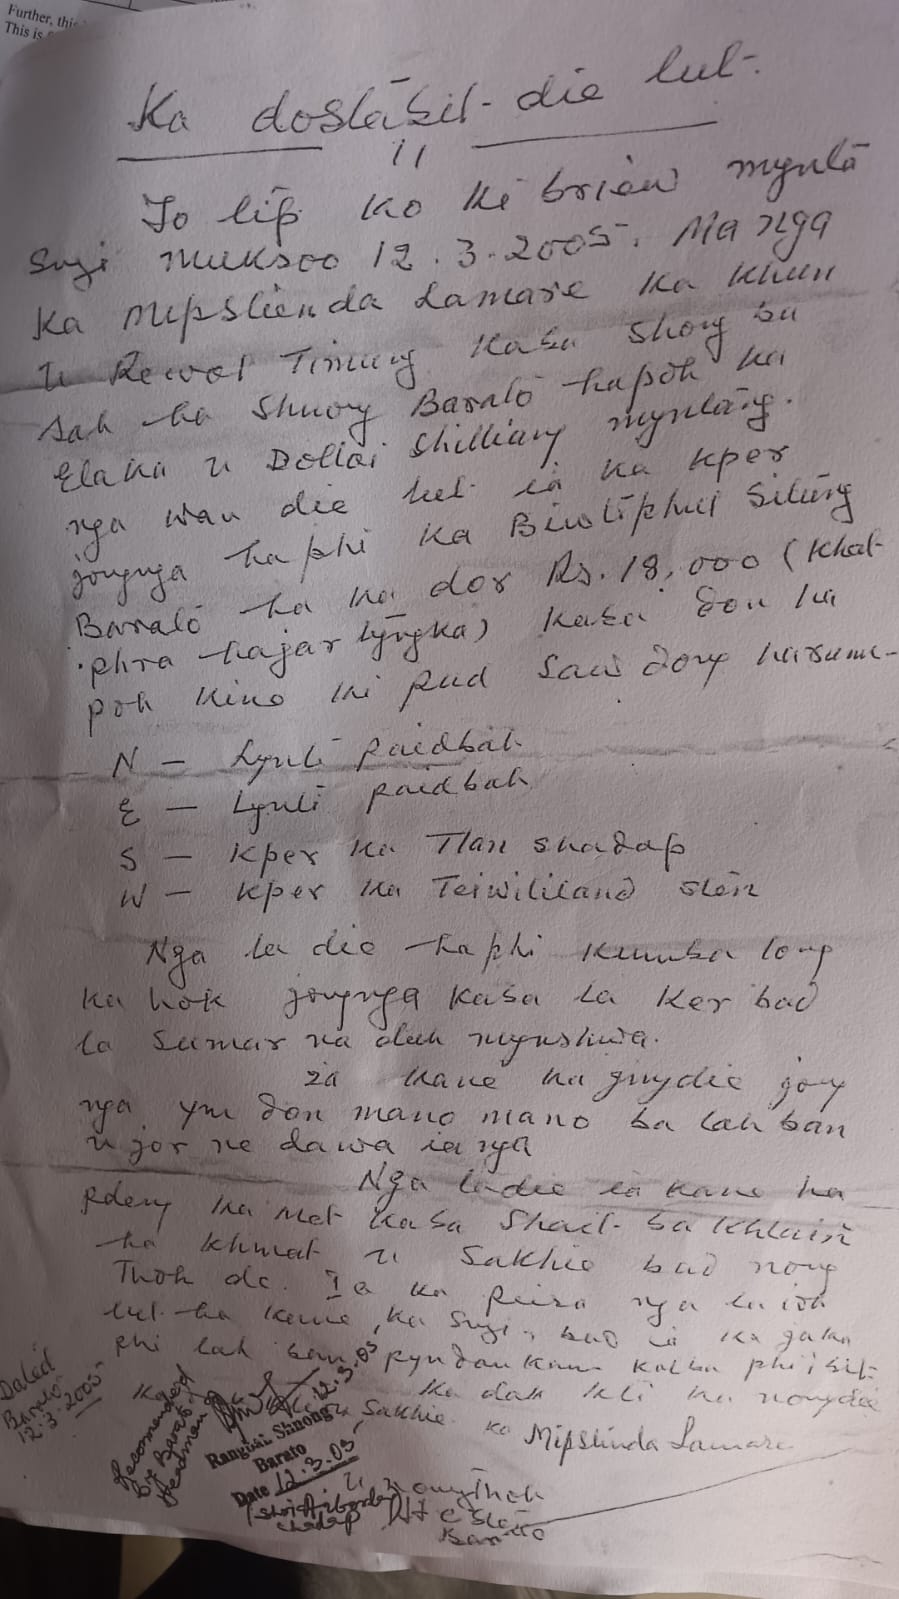 Further, this
This is
Ka dostabit die lut.
Io tip ko ki briew mynta
Sngi muksoo 12.3.2005. Ma nga
Ka Mipslienda Lamare Ka Khun
U Rewol Timung Kaba Shong ba
Sah ha Shnong Barato hapoh ka
Elaka u Dolloi Shilliang myntang.
nga wan die lut ia ka kper
jongnga ha phi ka Biustiphul Siting
Barato ha ka dor Rs. 18,000 (Khat
phra hajar tyngka) kaba don ha
poh kine ki pud saw dong harum-
N – Lynti paidbah
E – Lynti paidbah
S – Kper ka Tlan shadap
W – Kper ka Teiwililand slein
Nga la die ha phi kumba long
ka hok jongnga kaba la ker bad
la sumar na duh mynshwa.
ia kane ka jingdie jong
nga ym don mano mano ba lah ban
ujor ne dawa ia nga
Nga ladie ia kane ha
pdeng ka met kaba shait ba khlain
ha khmat u sakhie bad nong
Thoh de. Ia ka peisa nga la ioh
lut ha kane ka sngi, bad ia ka jaka
phi lah ban pyndonkam katba phi i bit.
Ka dak kti ka nongdie
Ka Mipslinda Lamare
Sakhie
Dated
Barato
12-3-2005
Recomended
by Barato
Headman
12-3-05
Rangbai Shnong
Barato
Date 12.3.05
Shadap
U Nongthoh
Barato